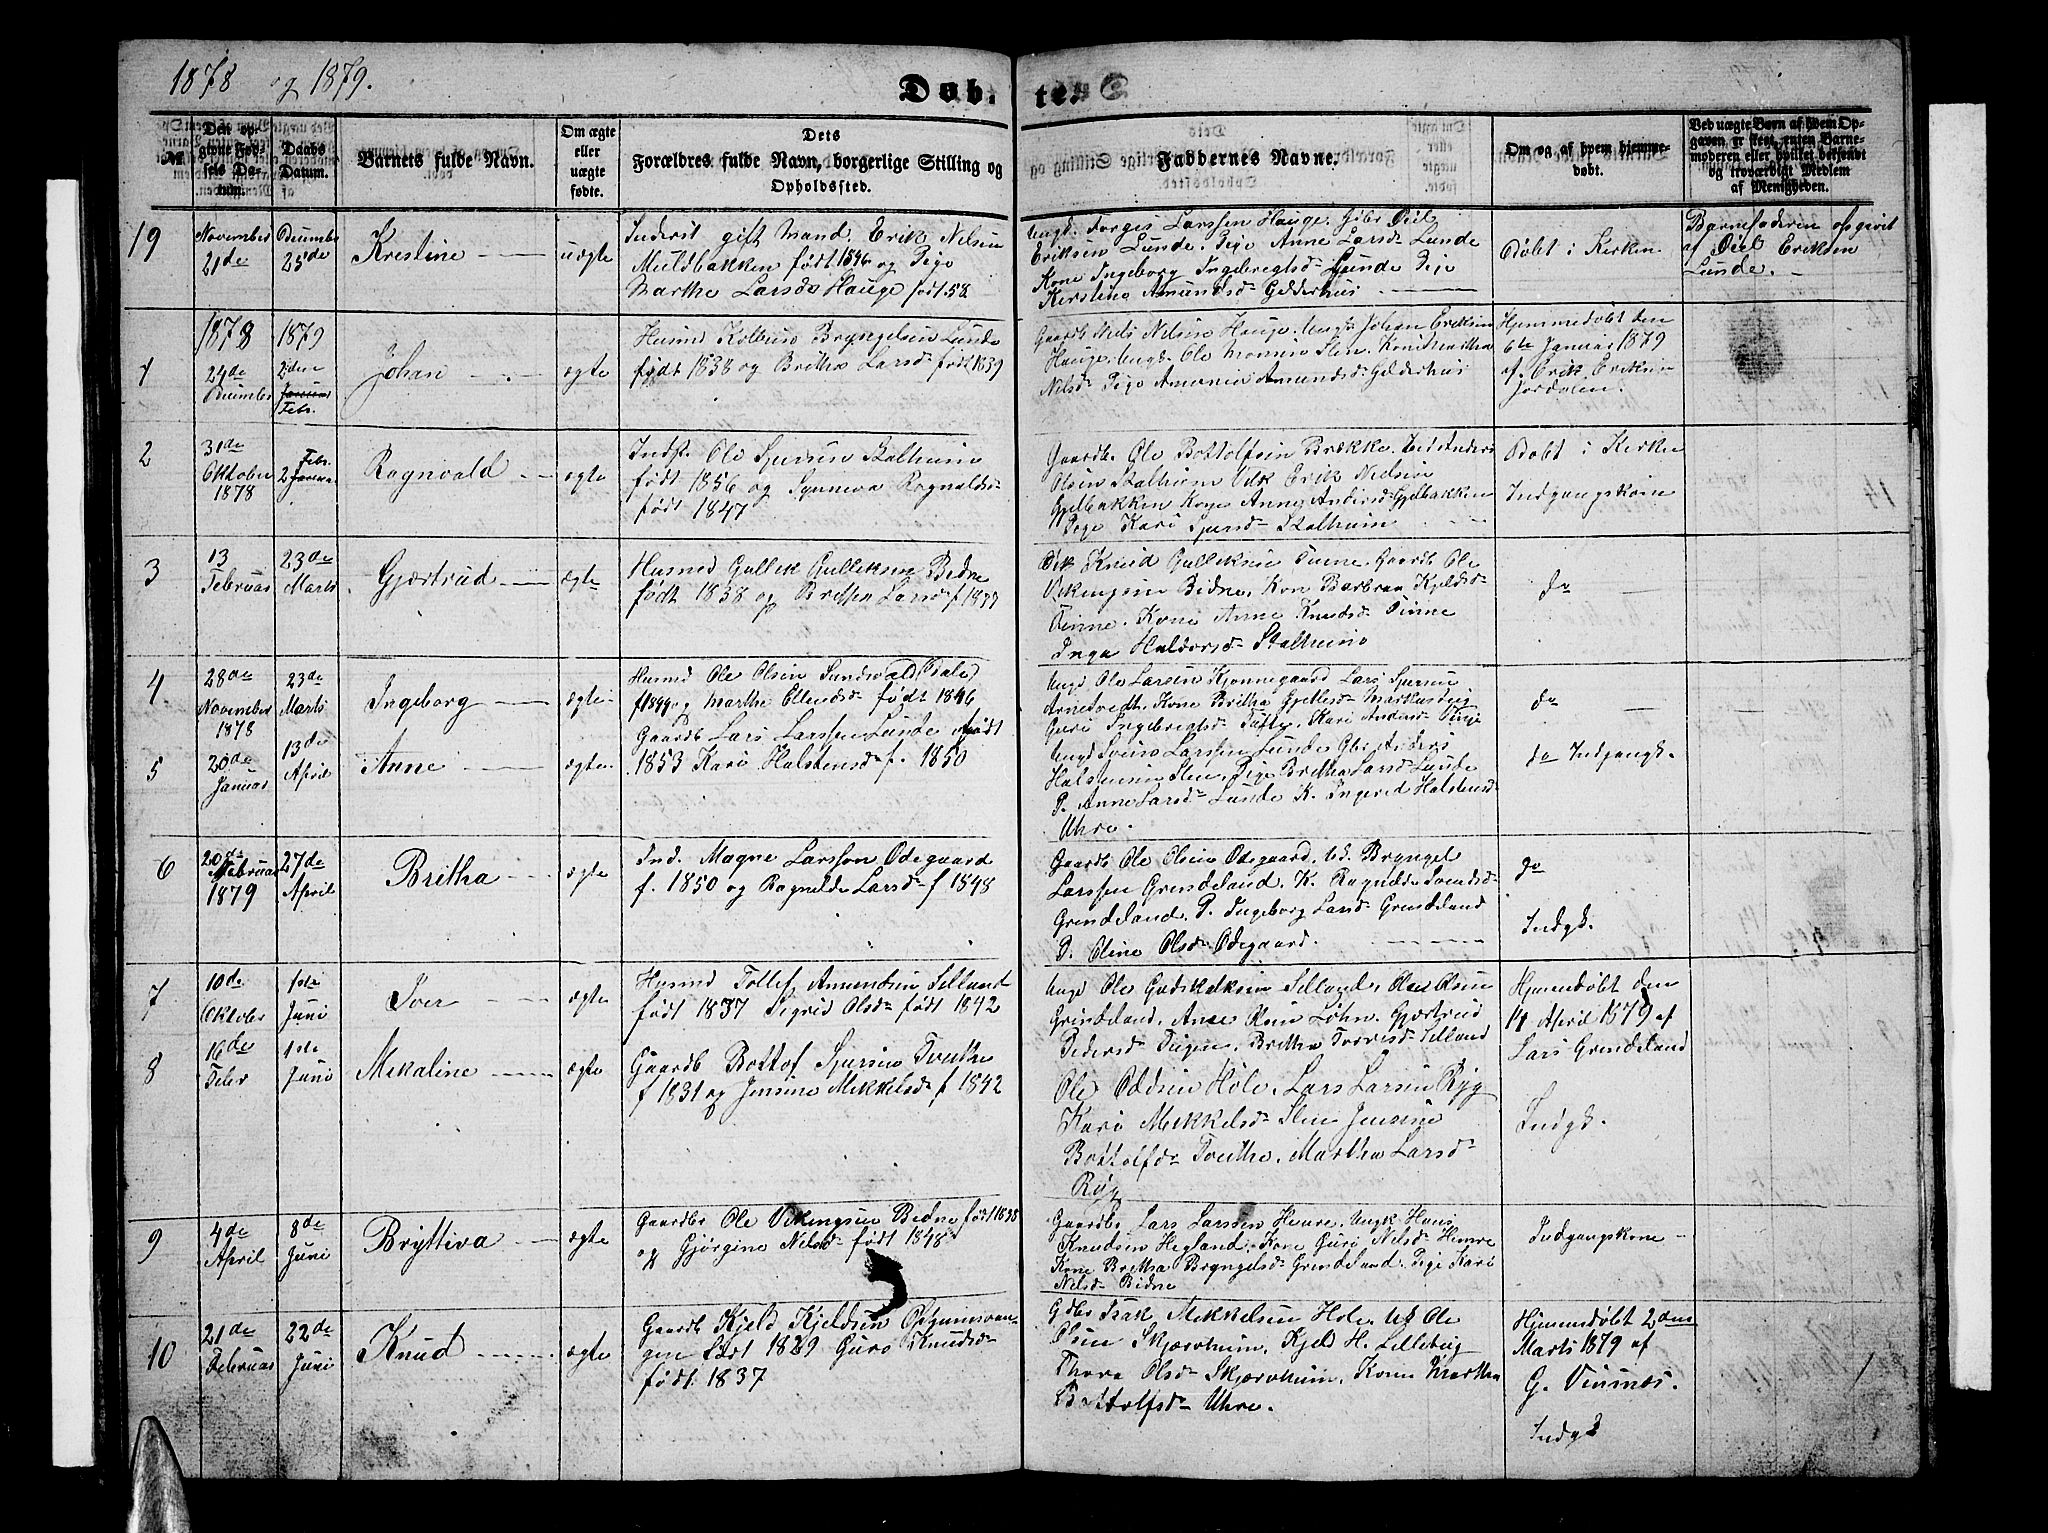 1878 og 1879.
Døb- te.
№
Den op-
givne Fød-
sels Da-
tum.
Daabs
Datum.
Barnets fulde Navn.
Om ægte
eller
uægte
fødte.
Dets
Forældres fulde Navn, borgerlige Stilling og
Opholdssted.
Faddernes Navne.
Om og af hvem hjemme-
døbt.
Ved uægte Børn af hvem Op-
gaven er skeet, enten Barne-
moderen eller hvilket bekjendt
og troværdigt Medlem
af Menigheden.
19
November
21de
Decembr
25de
Kristine
uægte
Inderst gift Mand. Erik Nilsen
Muldbakken født 1846 og Pige
Marthe Larsdr Hauge født 58
Ungk. Torgeis Larssen Hauge. Gbr. Odil
Eriksen Lunde. Pige Anne Larsdr Lunde
Kone Ingeborg Ingebregtsdr Lunde Pige
Kerstine Amundsdr Gelderhus
Døbt i Kirken
Barnefaderen opgivet
af Odil Eriksen
Lunde.
1
1878
24de
Decembr
1879
2den
Febr.
Johan
ægte
Husmd Kolbens Bryngelsen Lunde
født 1838 og Britha Larsdr født 1839
Gaardb Nils Nilsen Hauge. Ungk. Johan Eriksen
Hauge. Ungk. Ole Monsen Slen. Kone Martha
Nilsdr Pige Amonia Amundsdr Gelderhus
Hjemmedøbt den
6te Januar 1879
af Erik Eriksen
Jordalen.
2
31de
Oktober
1878
2 Febr.
Ragnvald
ægte
Indst. Ole Sjursen Stalheim
født 1856 og Synneva Ragnaldsdr
født 1847
Gaardb. Ole Bottolfsen Brække. Anders
Olsen Stalheim Erik Nielsen
Gjelbakken Kone Anne Andersdr Gjelbakken
Pige Kari Sjursdr Stalheim
Døbt i Kirken
Indgangskone
3
13
Februar
23de
Marts
Gjærtrud
ægte
Husmd Gullek Gulleksen Bidne
født 1838 og Britha Larsdr f 1837
Knud Gulleksen Vinne. Gaardb Ole
Vikingsen Bidne. Kone Barbraa Kjeldsdr
Vinne. Kone Anne Knudsdr Vinne
Inga Haldorsdr Stalheim
do
4
28de
November
1878
23de
Marts
Ingeborg
ægte
Husmd Ole Olsen Sundsvald (Dale)
f 1844 og Marthe Ellendsdr født 1846
Ungk Ole Larsen Kjonnegaard Lars Sjursen
Arnetvedt. Kone Britha Gjellesdr
Guri Ingebregtsdr Tufte. Kari Andersdr Vinje
do
5
20de
Januar
13de
April
Anne
ægte
Gaardb Lars Larssen Lunde født
1853 Kari Halstensdr f. 1850
Ungk Sveins Larssen Lunde Gbr Anders
Halstensen Slen. Pige Britha Larsdr Lunde
P. Anne Larsdr Lunde K. Ingerid Halstensdr
Uhre.
do Indgangsk.
6
20de
Februar
1879
27de
April
Britha
ægte
Ind. Magne Larsson Ødegaard
f. 1850 og Ragnilda Larsdr f 1848
Gaardb Ole Olsen Ødegaard. Bryngel
Larssen Grindeland. K. Ragnilde Svendsdr
Grindeland. P. Ingeborg Larsdr Grindeland
P. Oline Olsdr Ødegaard.
do
Indgk.
7
10de
Oktober
1ste
Juni
Iver
ægte
Husmd Tollef Amundsen Selland
født 1837 Sigrid Olsdr født 1842
Ungk Ole Godskalksen Selland. Oles Olsen
Grindeland. Anne Olsdr Løhn. Gjærtrud
Pedersdr. Britha Torresdr Selland
Hjemmedøbt den
14 April 1879 af
Lars Grindeland
8
16de
Febr
1ste
Juni
Mikaline
ægte
Gaardb Bottof Sjursen Tveithe
f 1831 og Jensine Mikkelsdr f 1842
Ole Oddsen Hole. Lars Larsen Ryg
Kari Mikkelsdr Slen Jensine
Bottolfdr Tveithe. Martha Larsdr
Ryg
Indgk.
9
4de
April
8de
Juni
Bryttiva
ægte
Gaardbr Ole Vikingsen Bidne født 1838
og Gjørgine Nilsdr født 1848
Gaardb. Lars Larssen Henre. Ungk Hans
Knudsen Hegland. Kone Guro Nilsdr Henre
Kone Britha Bryngelsdr Grindeland. Pige Kari
Nilsdr Bidne
Indgangskone
10
21de
Februar
22de
Juni
Knud
ægte
Gaardb Kjeld Kjeldsen Opheimsvan-
gen født 1829 Guro Knudsdr
født 1837
Gdbr Isak Mikkelsen Hole. Uk Ole
Olsen Skjærvheim. Kjeld H. Lilleteig
Thora Olsdr Skjærvheim. Kone Martha
Bottolfsdr Uhre.
Hjemmedøbt 2den
Marts 1879 af
G. Vinsnes.
Indgk